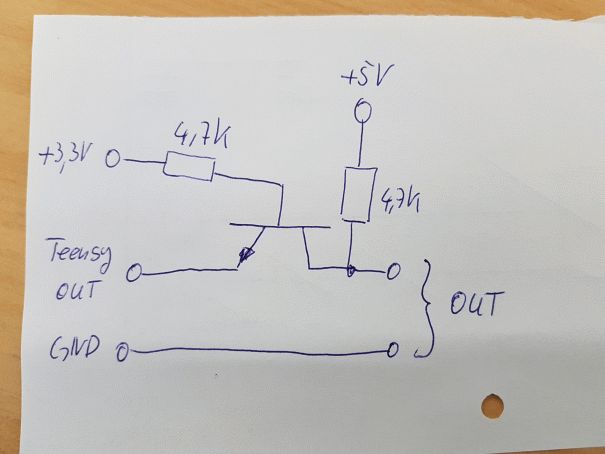 +5V
4,7k
+3,3V
4,7k
Teensy
OUT
OUT
GND